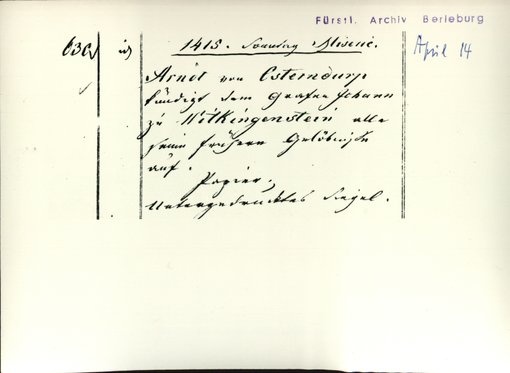 Fürstl. Archiv Berleburg
April 14
1415. Sonntag Miseric.
Arndt von Osterndorp
kündigt dem Grafen Johann
zu Witkingenstein alle
seine frühern Gelöbnisse
auf.
Papier,
Untergedrucktes Siegel.